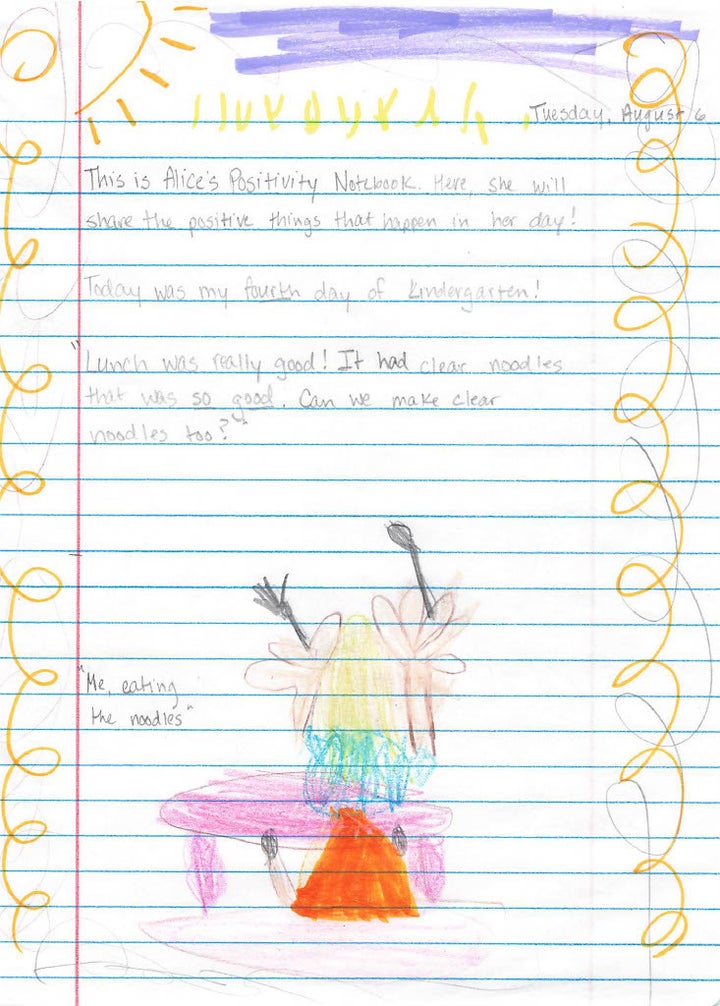 Tuesday, August 6
This is Alice's Positivity Notebook. Here, she will
share the positive things that happen in her day!
Today was my fourth day of kindergarten!
"Lunch was really good! It had clear noodles
that was so good. Can we make clear
noodles too?"
"Me, eating
the noodles"